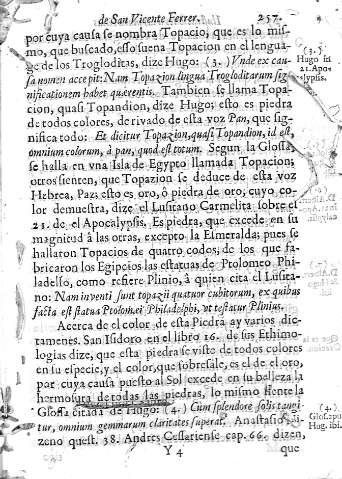 de San Vicente Ferrer. 257.
por cuya causa se nombra Topacio, que es lo mis-
mo, que buscado, esso suena Topacion en el lengua-
ge de los Trogloditas, dize Hugo: (3.) Unde ex cau-
sa nomen accepit: Nam Topazion lingua Trogloditarum sig-
nificationem habet quærentis. Tambien se llama Topa-
cion, quasi Topandion, dize Hugo; esto es piedra
de todos colores, derivado de esta voz Pan, que sig-
nifica todo: Et dicitur Topazion, quasi Topandion, id est,
omnium colorum, à pan, quod est totum. Segun la Glossa,
se halla en vna Isla de Egypto llamada Topacion;
otros sienten, que Topazion se deduce de esta voz
Hebrea, Paz; esto es oro, ò piedra de oro; cuyo co-
lor demuestra, dize el Lusitano Carmelita sobre el
21. de el Apocalypsis. Es piedra, que excede en su
magnitud à las otras, excepto la Esmeralda; pues se
hallaron Topacios de quatro codos; de los que fa-
bricaron los Egipcios las estatuas de Ptolomeo Phi-
ladelfo, como refiere Plinio, à quien cita el Lusita-
no: Nam inventi sunt topazii quatuor cubitorum, ex quibus
facta est statua Ptolomei Philadelphi, vt testatur Plinius.
Acerca de el color de esta Piedra ay varios dic-
tamenes. San Isidoro en el libro 16. de sus Ethimo-
logias dize, que esta piedra se viste de todos colores
en su especie, y el color, que sobresale, es el de el oro,
por cuya causa puesto al Sol excede en su belleza la
hermosura de todas las piedras, lo mismo siente la
Glossa citada de Hugo: (4.) Cum splendore solis tangi-
tur, omnium gemmarum claritates superat. Anastasio Ni-
zeno quest. 38. Andres Cessariense cap. 66. dizen,
Y 4 que
(3.)
Hugo in
21. Apo-
calypsis.
(4.)
Glos. apu
Hug. ibi.